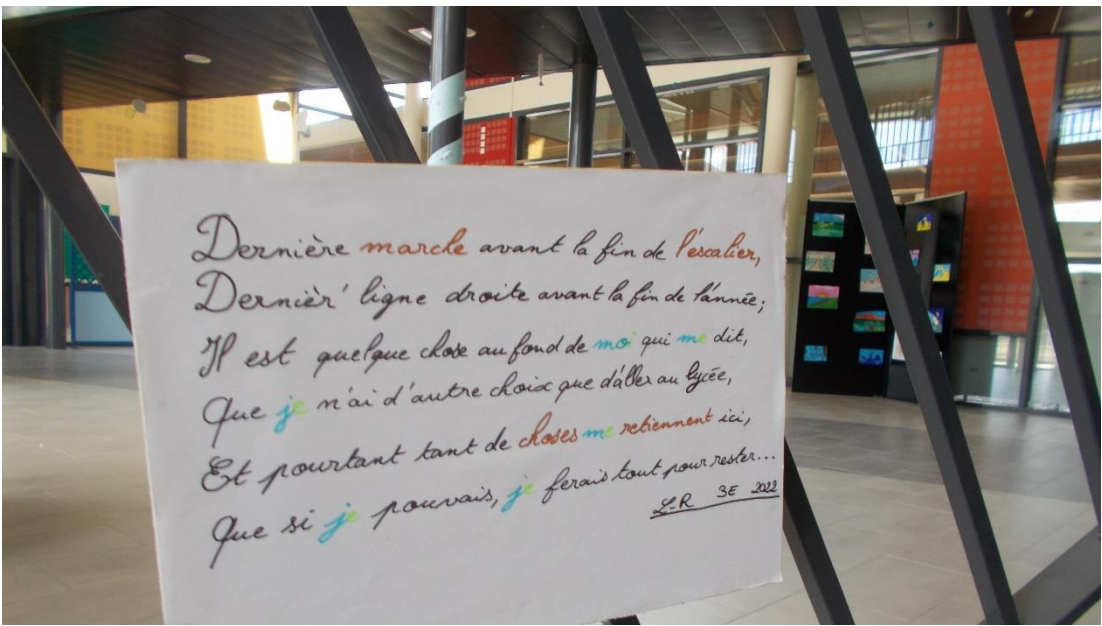 Dernière marche avant la fin de l'escalier,
Dernièr' ligne droite avant la fin de l'année;
Il est quelque chose au fond de moi qui me dit,
Que je n'ai d'autre choix que d'aller au lycée,
Et pourtant tant de choses me retiennent ici,
Que si je pouvais, je ferais tout pour rester...
L-R 3E 2022